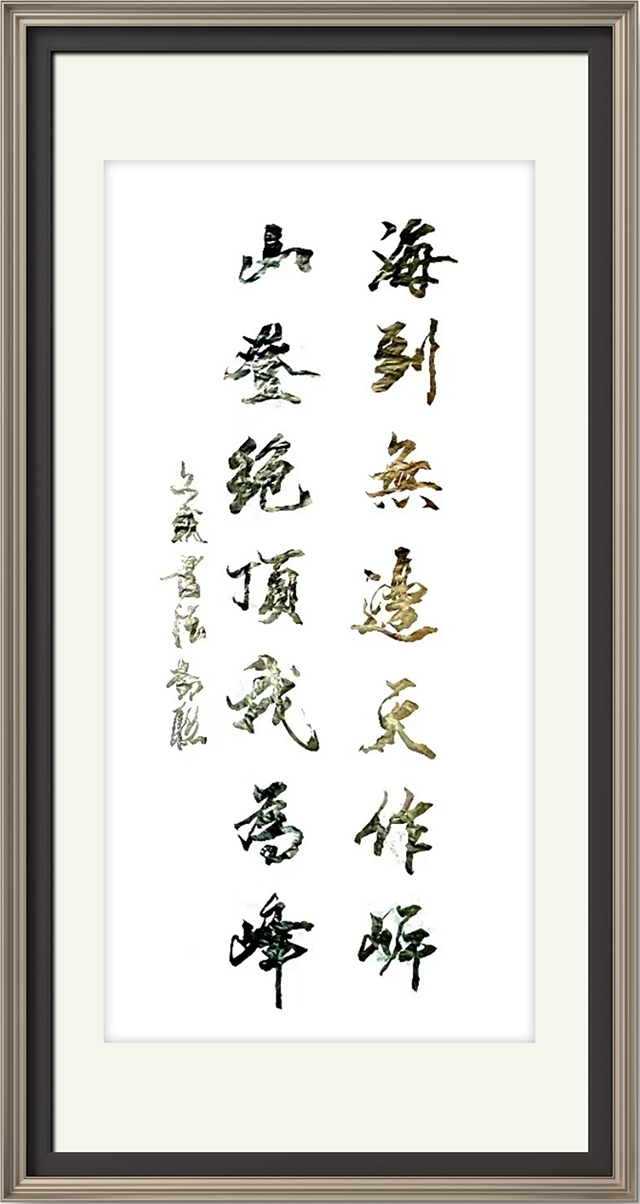 海到無邊天作岸
山登絶頂我為峰
書法